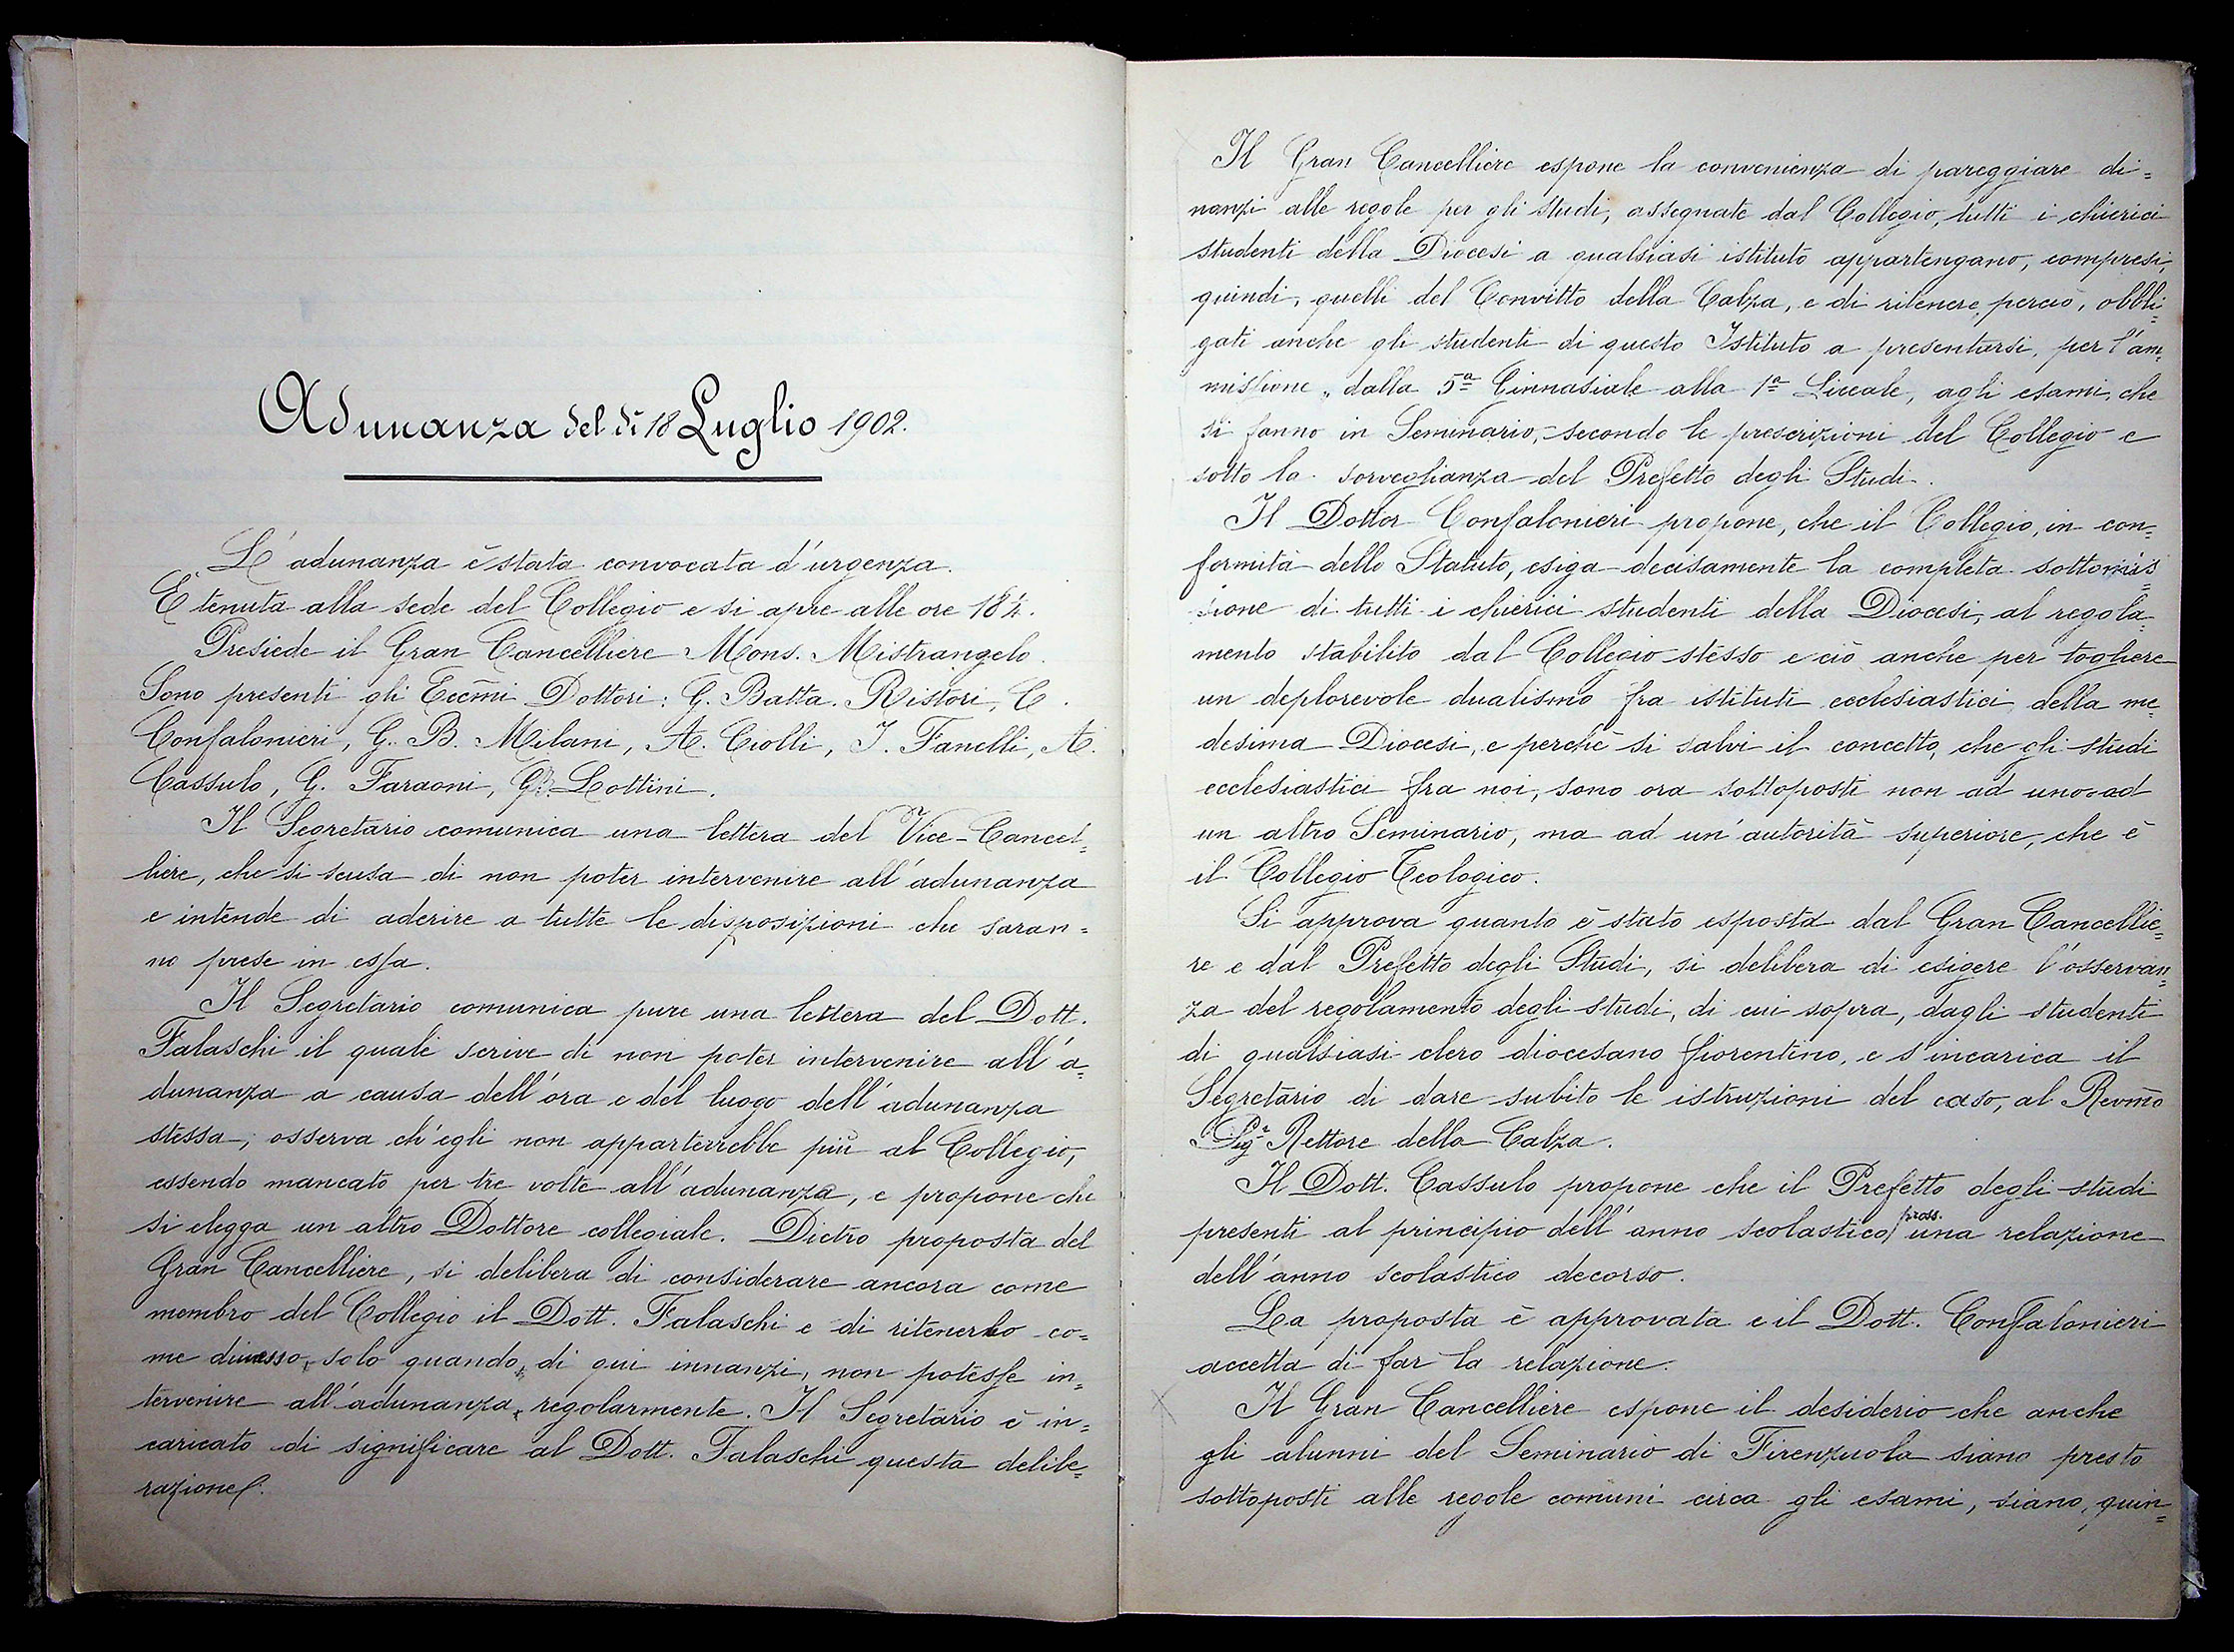 Adunanza del dì 18 Luglio 1902.
L'adunanza è stata convocata d'urgenza.
È tenuta alla sede del Collegio e si apre alle ore 18½.
Presiede il Gran Cancelliere Mons. Mistrangelo.
Sono presenti gli Eccm̃i Dottori: G. Batta. Ristori, C.
Confalonieri, G. B. Milani, A. Ciolli, I. Fanelli, A.
Cassulo, G. Faraoni, G.B. Lottini.
Il Segretario comunica una lettera del Vice-Cancel=
liere, che si scusa di non poter intervenire all'adunanza
e intende di aderire a tutte le disposizioni che saran=
no prese in essa.
Il Segretario comunica pure una lettera del Dott.
Falaschi il quale scrive di non poter intervenire all'a=
dunanza a causa dell'ora e del luogo dell'adunanza
stessa; osserva ch'egli non apparterrebbe più al Collegio,
essendo mancato per tre volte all'adunanza, e propone che
si elegga un altro Dottore collegiale. Dietro proposta del
Gran Cancelliere, si delibera di considerare ancora come
membro del Collegio il Dott. Falaschi e di ritenerlo co=
me dimesso, solo quando, di qui innanzi, non potesse in=
tervenire all'adunanza, regolarmente. Il Segretario è in=
caricato di significare al Dott. Falaschi questa delibe=
razione.
Il Gran Cancelliere espone la convenienza di pareggiare di=
nanzi alle regole per gli studi, assegnate dal Collegio, tutti i chierici
studenti della Diocesi a qualsiasi istituto appartengano, compresi,
quindi, quelli del Convitto della Calza, e di ritenere, perciò, obbli=
gati anche gli studenti di questo Istituto a presentarsi, per l'am=
missione, dalla 5ª Ginnasiale alla 1ª Liceale, agli esami, che
si fanno in Seminario, secondo le prescrizioni del Collegio e
sotto la sorveglianza del Prefetto degli Studi.
Il Dottor Confalonieri propone, che il Collegio, in con=
formità dello Statuto, esiga decisamente la completa sottomis=
sione di tutti i chierici studenti della Diocesi, al regola=
mento stabilito dal Collegio stesso e ciò anche per togliere
un deplorevole dualismo fra istituti ecclesiastici della me=
desima Diocesi, e perchè si salvi il concetto, che gli studi
ecclesiastici fra noi, sono ora sottoposti non ad uno o ad
un altro Seminario, ma ad un'autorità superiore, che è
il Collegio Teologico.
Si approva quanto è stato esposto dal Gran Cancellie=
re e dal Prefetto degli Studi, si delibera di esigere l'osservan=
za del regolamento degli studi, di cui sopra, dagli studenti
di qualsiasi clero diocesano fiorentino, e s'incarica il
Segretario di dare subito le istruzioni del caso, al Revm̃o
Sigʳ Rettore della Calza.
Il Dott. Cassulo propone che il Prefetto degli studi
presenti al principio dell'anno scolastico pross. una relazione
dell'anno scolastico decorso.
La proposta è approvata e il Dott. Confalonieri
accetta di far la relazione.
Il Gran Cancelliere espone il desiderio che anche
gli alunni del Seminario di Firenzuola siano presto
sottoposti alle regole comuni circa gli esami, siano, quin=